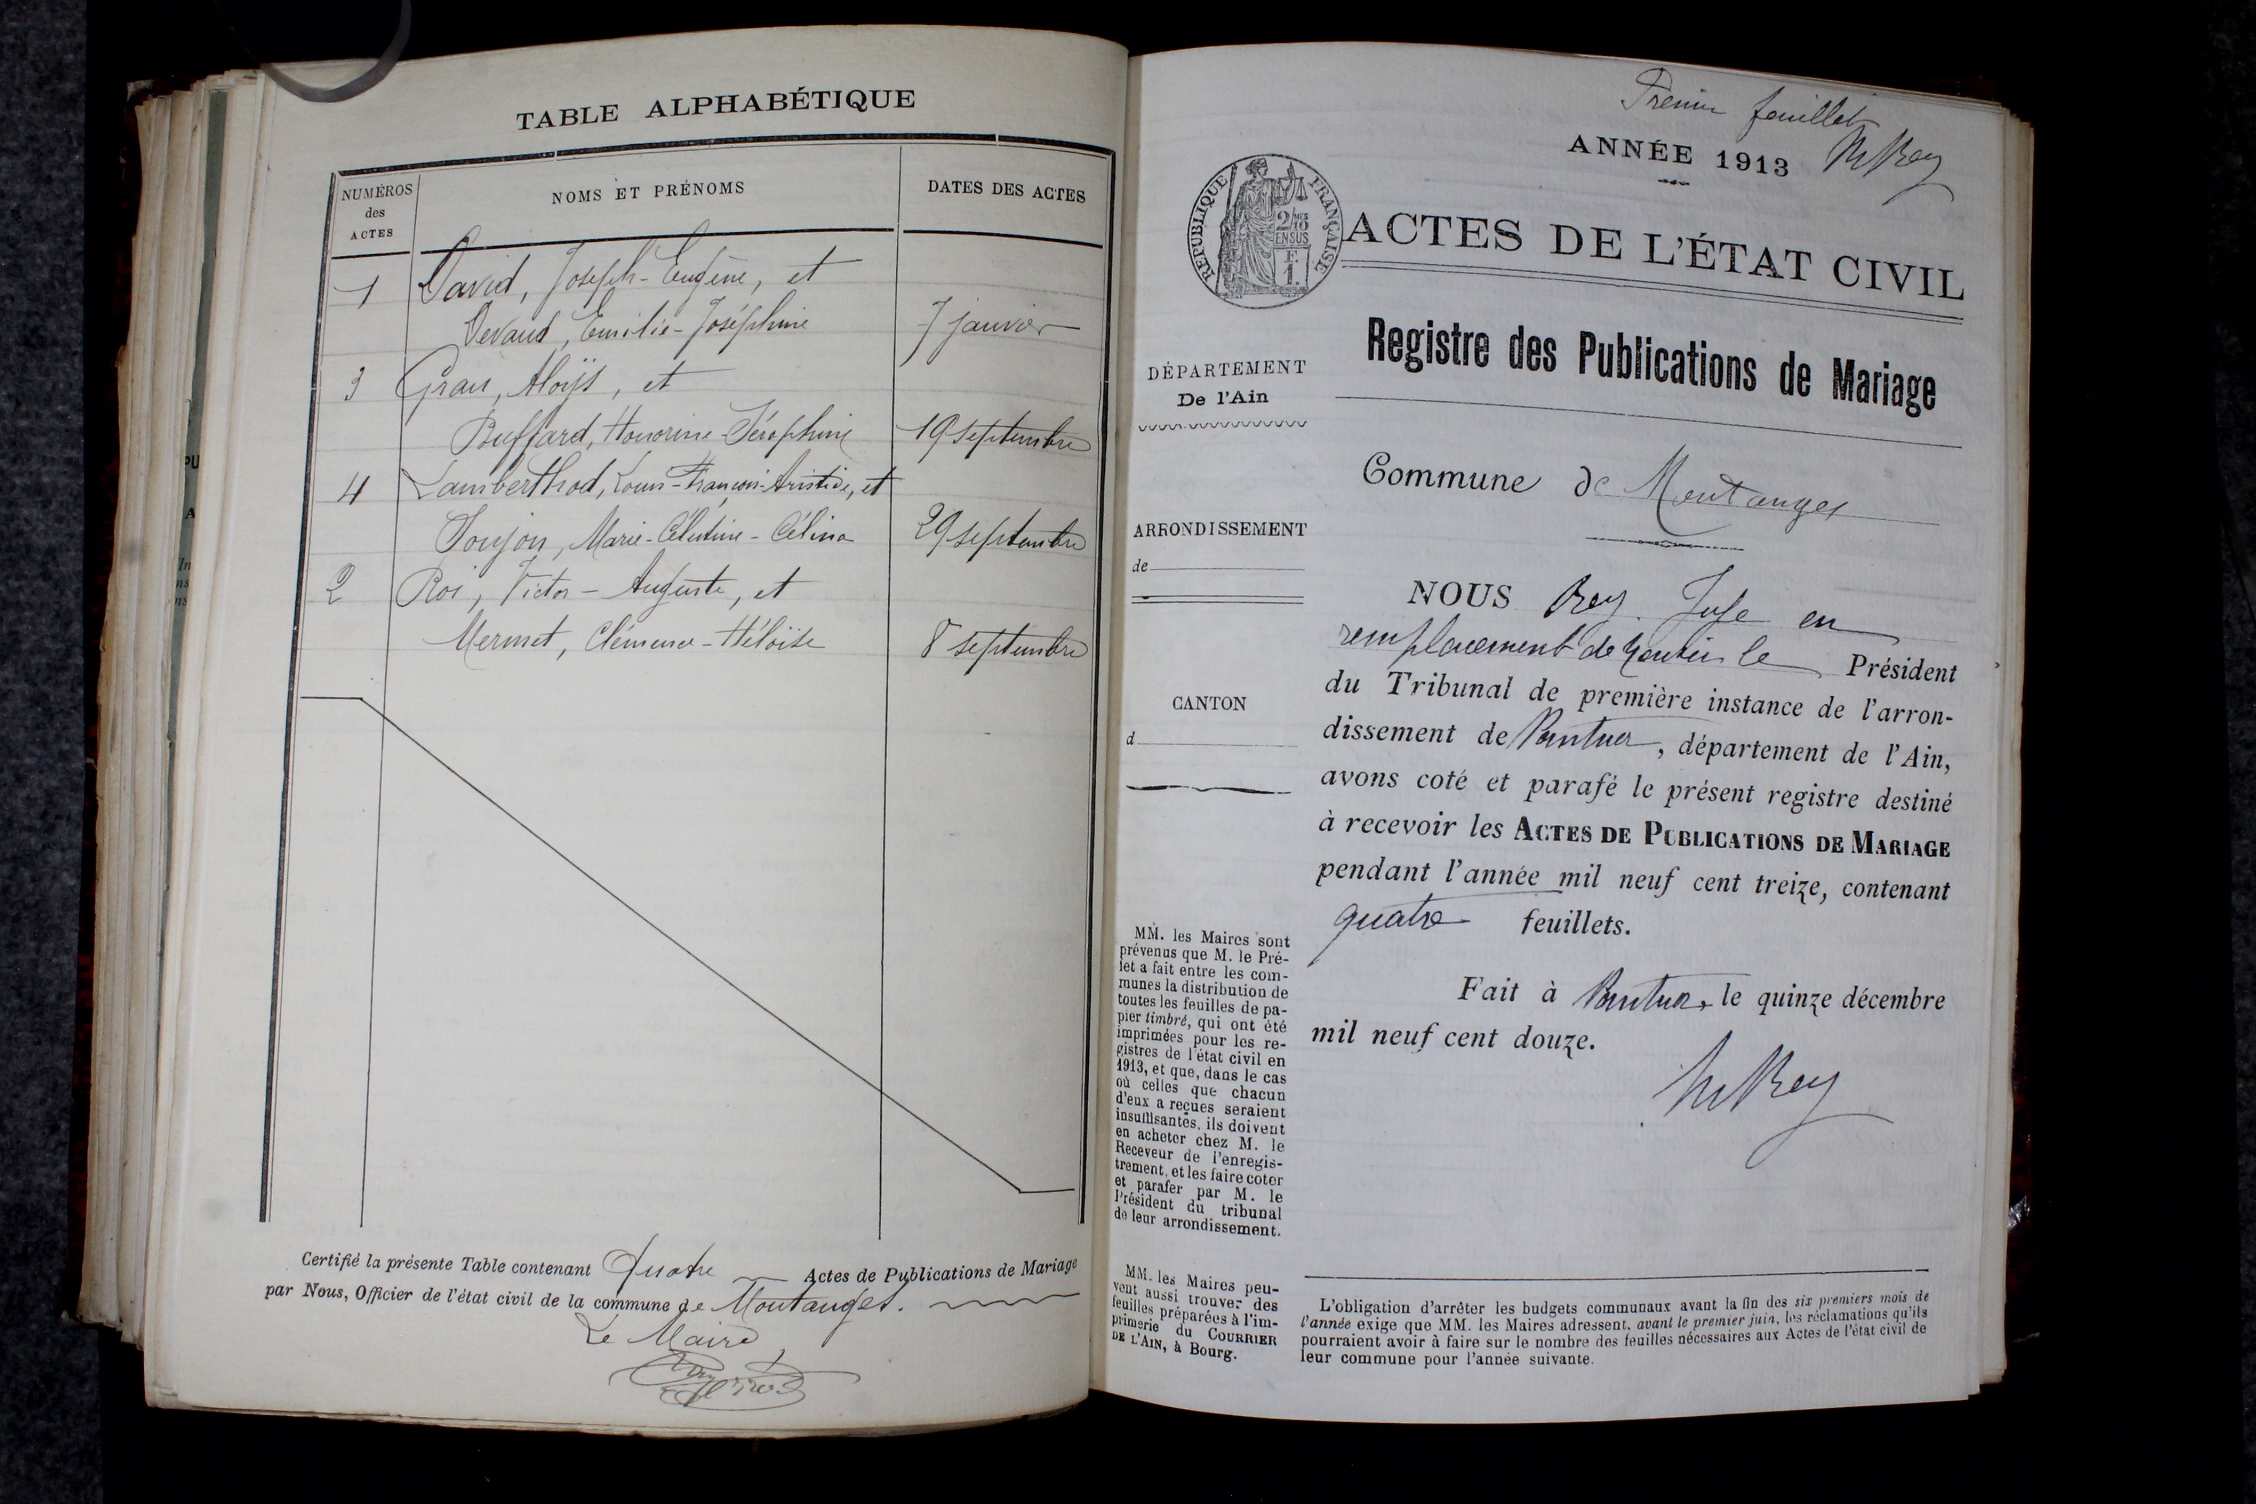 TABLE ALPHABÉTIQUE
NUMÉROS
des
ACTES
NOMS ET PRÉNOMS
DATES DES ACTES
1 David, Joseph-Eugène, et
Devaud, Emilie-Joséphine 7 janvier
3 Gros, Aloÿs, et
Buffard, Honorine-Séraphine 19 septembre
4 Lamberthod, Louis-François-Aristide, et
Goujon, Marie-Célestine-Célina 29 septembre
2 Roi, Victor-Auguste, et
Mermet, Clémence-Héloïse 8 septembre
Certifié la présente Table contenant Quatre Actes de Publications de Mariage
par Nous, Officier de l'état civil de la commune de Montanges.
Le Maire
Premier feuillet
ANNÉE 1913
RÉPUBLIQUE FRANÇAISE
2/10
EN SUS
F.
1.
ACTES DE L'ÉTAT CIVIL
Registre des Publications de Mariage
DÉPARTEMENT
De l'Ain
Commune de Montanges
ARRONDISSEMENT
de
CANTON
d
NOUS Rey Juge en
remplacement de Monsieur le Président
du Tribunal de première instance de l'arron-
dissement de Nantua, département de l'Ain,
avons coté et parafé le présent registre destiné
à recevoir les ACTES DE PUBLICATIONS DE MARIAGE
pendant l'année mil neuf cent treize, contenant
quatre feuillets.
Fait à Nantua, le quinze décembre
mil neuf cent douze.
Rey
MM. les Maires sont
prévenus que M. le Pré-
fet a fait entre les com-
munes la distribution de
toutes les feuilles de pa-
pier timbré, qui ont été
imprimées pour les re-
gistres de l'état civil en
1913, et que, dans le cas
où celles que chacun
d'eux a reçues seraient
insuffisantes, ils doivent
en acheter chez M. le
Receveur de l'enregis-
trement, et les faire coter
et parafer par M. le
Président du tribunal
de leur arrondissement.
MM. les Maires peu-
vent aussi trouver des
feuilles préparées à l'im-
primerie du COURRIER
DE L'AIN, à Bourg.
L'obligation d'arrêter les budgets communaux avant la fin des six premiers mois de
l'année exige que MM. les Maires adressent, avant le premier juin, les réclamations qu'ils
pourraient avoir à faire sur le nombre des feuilles nécessaires aux Actes de l'état civil de
leur commune pour l'année suivante.